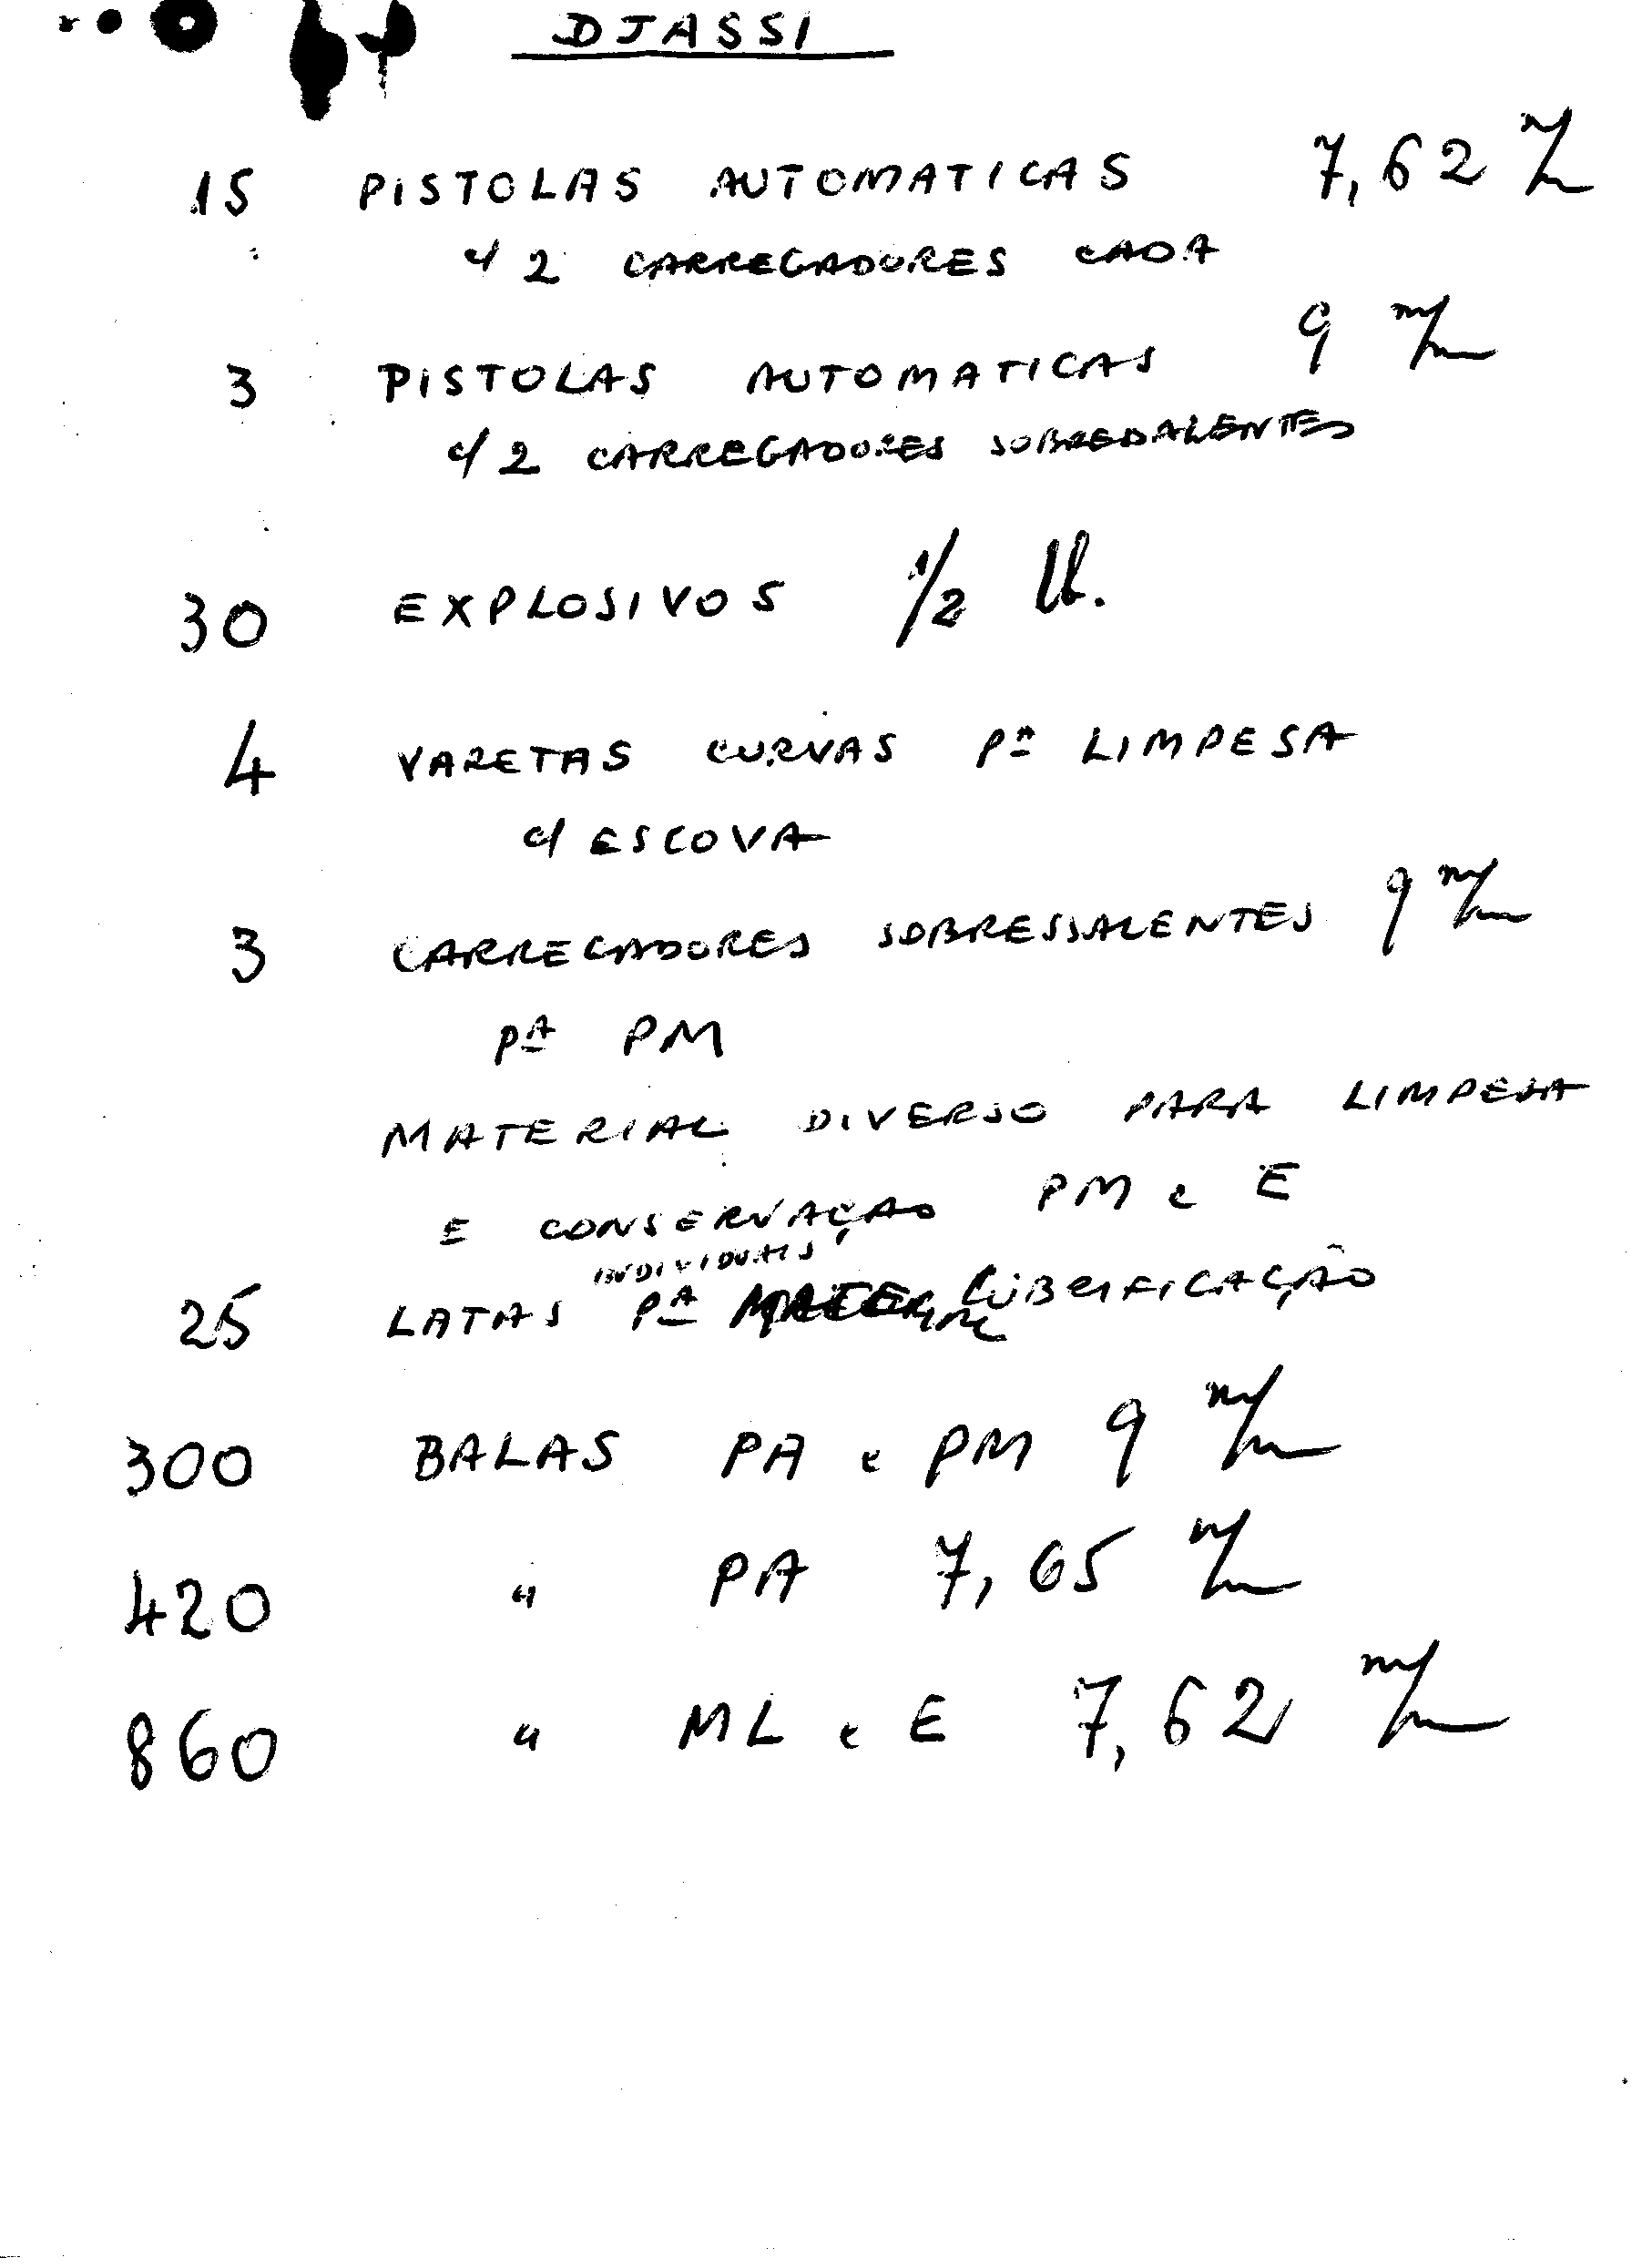 DJASSI
15 PISTOLAS AUTOMATICAS 7,62 m/m
c/ 2 CARREGADORES CADA
3 PISTOLAS AUTOMATICAS 9 m/m
c/ 2 CARREGADORES SOBRESALENTES
30 EXPLOSIVOS 1/2 lb.
4 VARETAS CURVAS Pª LIMPESA
c/ ESCOVA
3 CARREGADORES SOBRESSALENTES 9 m/m
Pª PM
MATERIAL DIVERSO PARA LIMPESA
E CONSERVAÇÃO PM e E
INDIVIDUAIS
25 LATAS Pª LUBRIFICAÇÃO
300 BALAS PA e PM 9 m/m
420 " PA 7,65 m/m
860 " ML e E 7,62 m/m